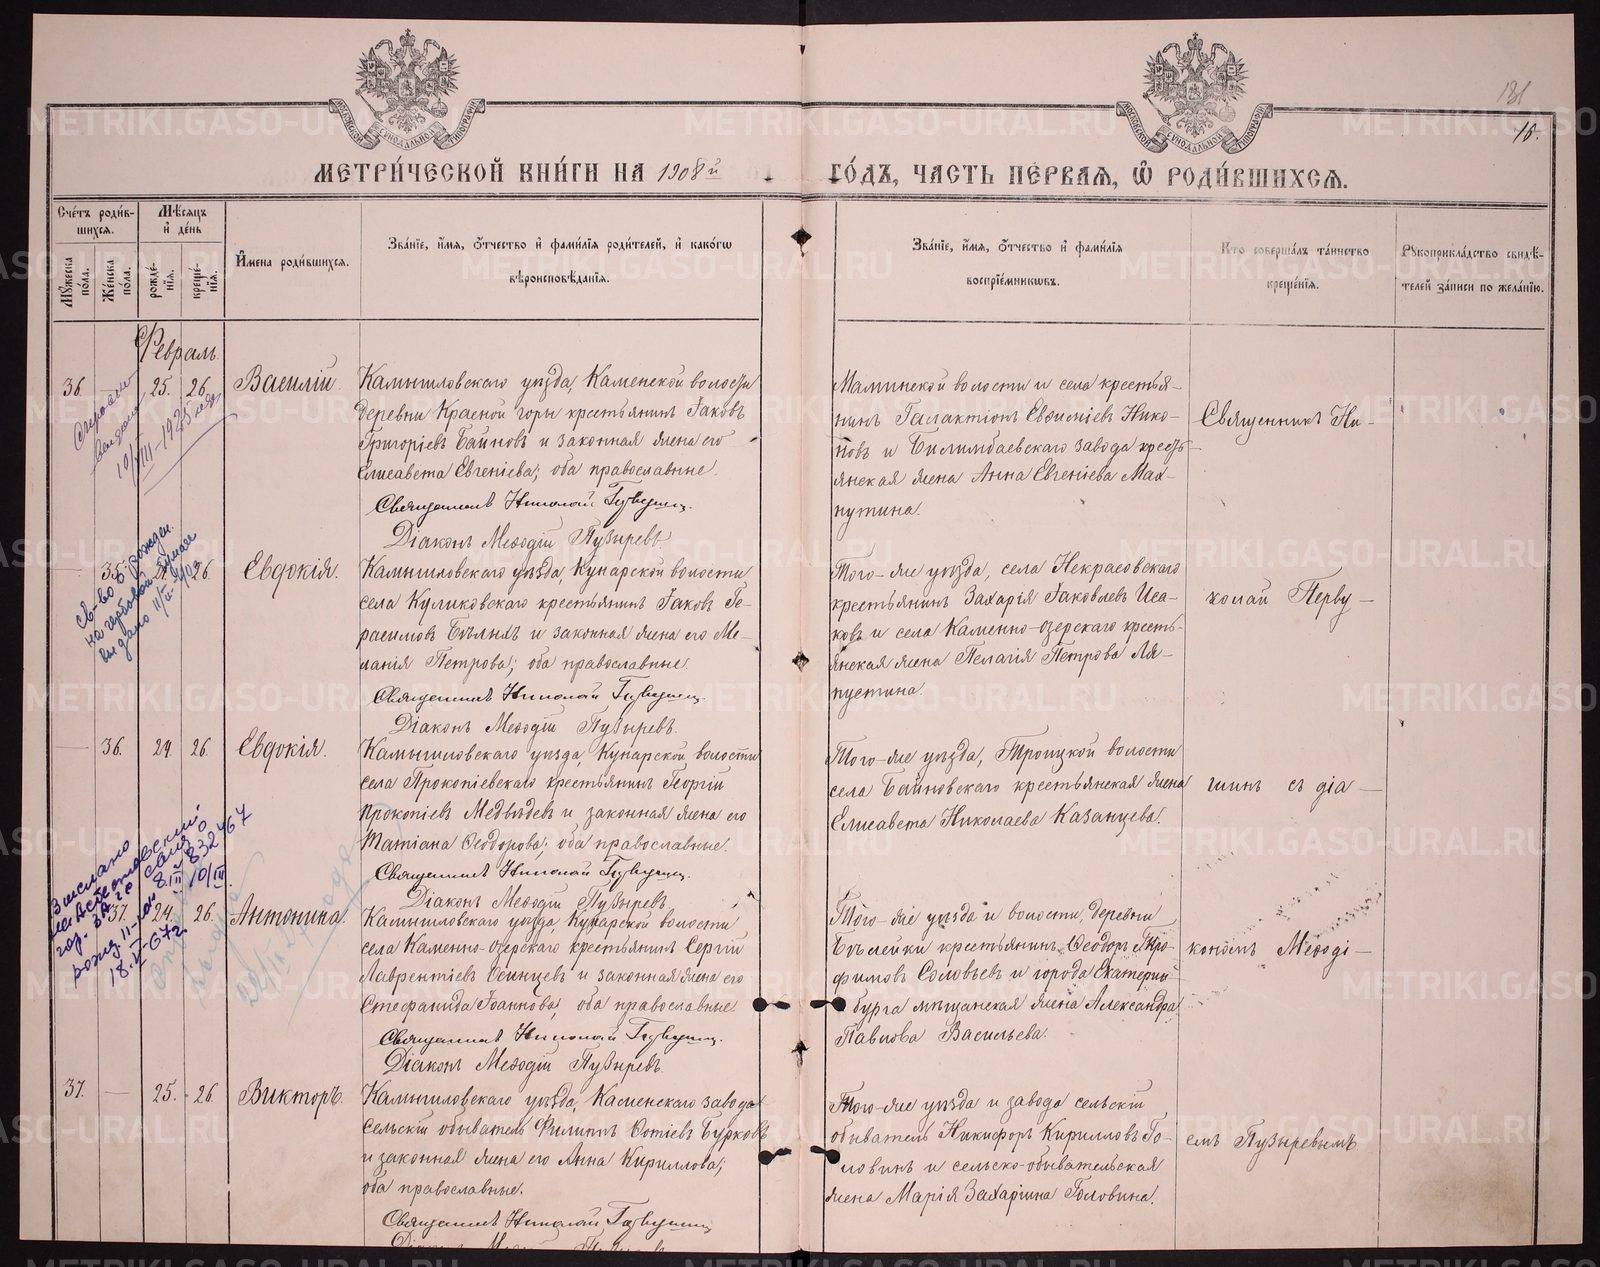 МОСКОВСКОЙ СѴНОДАЛЬНОЙ ТИПОГРАФІИ
МОСКОВСКОЙ СѴНОДАЛЬНОЙ ТИПОГРАФІИ
131
16.
МЕТРИ́ЧЕСКОЙ КНИ́ГИ НА 1908й
ГО́ДЪ, ЧАСТЬ ПЕ́РВАЯ, Ѡ РОДИ́ВШИХСЯ.
Сче́тъ роди́в-
шихся.
Мꙋ́жеска по́ла.
Же́нска по́ла.
Мѣ́сяцъ и де́нь
рожде́-
нїя.
креще́-
нїя.
И҆мена роди́вшихся.
Зва́нїе, и҆́мя, ѻ҆́тчество и҆ фами́лїя роди́телей, и҆ како́гѡ
вѣроисповѣ́данїя.
Зва́нїе, и҆́мя, ѻ҆́тчество и҆ фами́лїя
воспрїе́мникѡвъ.
Кто соверша́лъ та́инство
креще́нїя.
Рꙋкоприкла́дство свидѣ́-
телей за́писи по жела́нїю.
Февраль
36.
25.
26.
Василій.
Камышловскаго уѣзда, Каменской волости
деревни Красной горы крестьянинъ Іаковъ
Григоріевъ Баиновъ и законная жена его
Елисавета Евгеніева; оба православные.
Священникъ Николай
Діаконъ Меѳодій Пузыревъ.
Маминской волости и села крестья-
нинъ Галактіонъ Евѳиміевъ Нико-
новъ и Билимбаевскаго завода кресть-
янская жена Анна Евгеніева Мах-
нутина.
Священникъ Ни-
10/VIII-1925
35.
26.
Евдокія.
Камышловскаго уѣзда, Кунарской волости
села Куликовскаго крестьянинъ Іаковъ Ге-
расимовъ Бѣлыхъ и законная жена его Ме-
ланія Петрова; оба православные.
Священникъ Николай
Діаконъ Меѳодій Пузыревъ.
Того-же уѣзда, села Некрасовскаго
крестьянинъ Захарія Іаковлевъ Иса-
ковъ и села Каменно-озерскаго кресть-
янская жена Пелагія Петрова Ля-
пустина.
колай Перву-
св-во о рожден.
на гербовой бумаге
выдано
36.
24.
26.
Евдокія.
Камышловскаго уѣзда, Кунарской волости
села Прокопіевскаго крестьянинъ Георгій
Прокопіевъ Медвѣдевъ и законная жена его
Татіана Ѳеодорова; оба православные.
Священникъ Николай
Діаконъ Меѳодій Пузыревъ.
Того-же уѣзда, Троицкой волости
села Байновскаго крестьянская жена
Елисавета Николаева Казанцева.
шинъ съ діа-
Выслано
гор. ЗАГС
рожд.
37.
24.
26.
Антонина.
Камышловскаго уѣзда, Кунарской волости
села Каменно-озерскаго крестьянинъ Сергій
Лаврентіевъ Осинцевъ и законная жена его
Стефанида Іоаннова; оба православные.
Священникъ Николай
Діаконъ Меѳодій Пузыревъ.
Того-же уѣзда и волости, деревни
Бѣлейки крестьянинъ Ѳеодоръ Тро-
фимовъ Соловьевъ и города Екатерин-
бурга мѣщанская жена Александра
Павлова Васильева.
кономъ Меѳоді-
37.
25.
26.
Викторъ.
Камышловскаго уѣзда, Каменскаго завода
сельскій обыватель Филиппъ Ѳотіевъ Бурковъ
и законная жена его Анна Кириллова;
оба православные.
Священникъ Николай
Діаконъ Меѳодій Пузыревъ
Того-же уѣзда и завода сельскій
обыватель Никифоръ Кирилловъ Го-
ловинъ и сельско-обывательская
жена Марія Захаріина Головина.
емъ Пузыревымъ.
METRIKI.GASO-URAL.RU